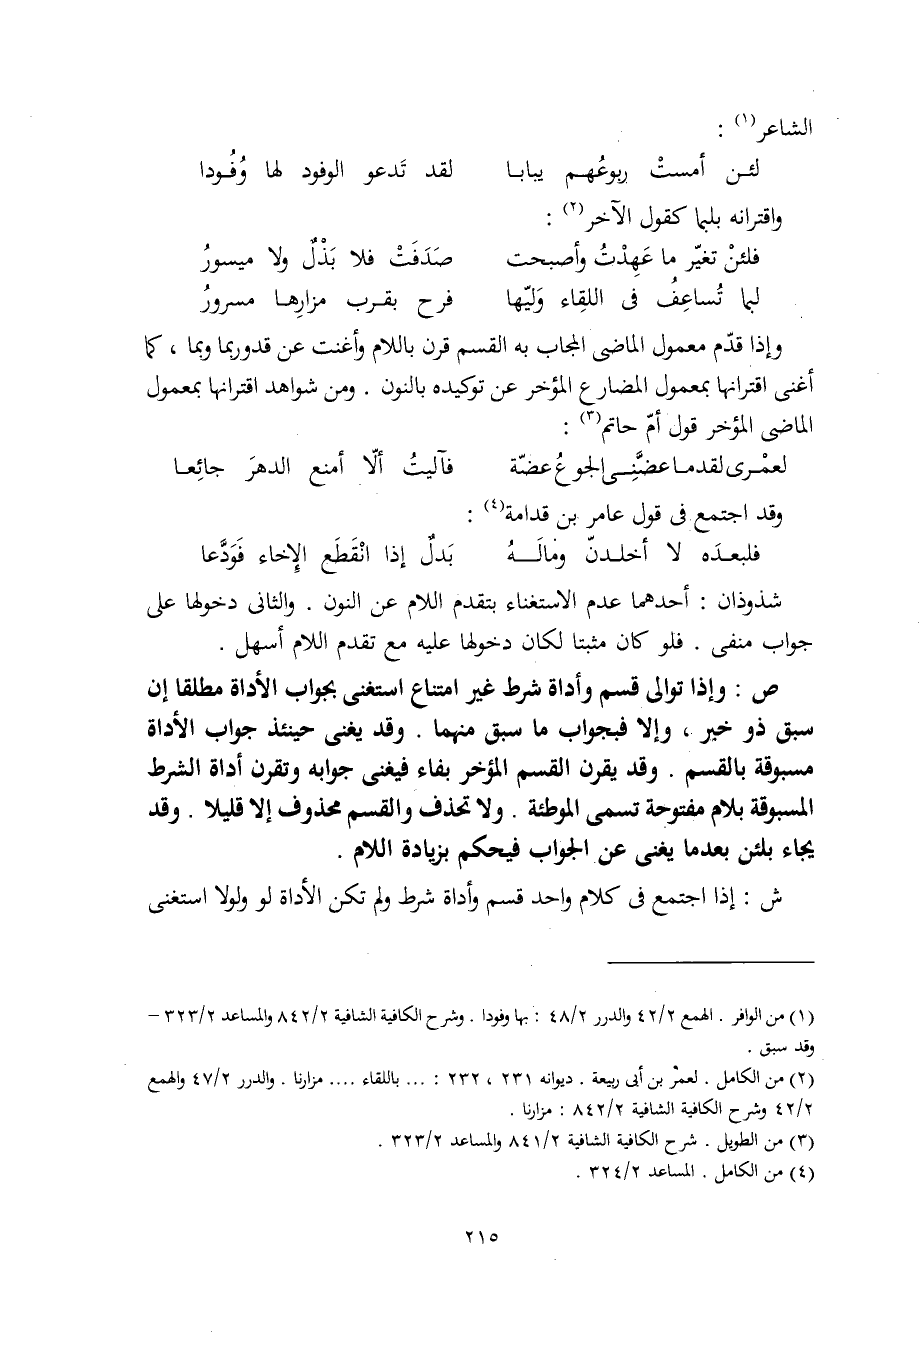 الشاعر(١) :
لئـن أمستْ ربوعُهـم يبابـا لقد تَدعو الوفود لها وُفُـودا
واقترانه بلبما كقول الآخر(٢) :
فلئنْ تغيّر ما عَهِدْتُ وأصبحت صَدَفَتْ فلا بَذْلٌ ولا ميسورُ
لبما تُساعِفُ فى اللقاء وَليّها فرح بقـرب مزارِهـا مسرورُ
وإذا قدّم معمول الماضى المجاب به القسم قرن باللام وأغنت عن قدوربما وبما ، كما
أغنى اقترانها بمعمول المضارع المؤخر عن توكيده بالنون . ومن شواهد اقترانها بمعمول
الماضى المؤخر قول أمّ حاتم(٣) :
لعمْرى لقدمـا عضَّنِـى الجوعُ عضّة فآليتُ ألّا أمنع الدهرَ جائِعـا
وقد اجتمع فى قول عامر بن قدامة(٤) :
فلبعـدَه لا أخلـدنّ ومَالَـــهُ بَدلٌ إذا انْقَطَع الإِخاء فَوَدَّعا
شذوذان : أحدهما عدم الاستغناء بتقدم اللام عن النون . والثانى دخولها على
جواب منفى . فلو كان مثبتا لكان دخولها عليه مع تقدم اللام أسهل .
ص : وإذا توالى قسم وأداة شرط غير امتناع استغنى بجواب الأداة مطلقا إن
سبق ذو خبر ، وإلا فبجواب ما سبق منهما . وقد يغنى حينئذ جواب الأداة
مسبوقة بالقسم . وقد يقرن القسم المؤخر بفاء فيغنى جوابه وتقرن أداة الشرط
المسبوقة بلام مفتوحة تسمى الموطئة . ولا تحذف والقسم محذوف إلا قليلا . وقد
يجاء بلئن بعدما يغنى عن الجواب فيحكم بزيادة اللام .
ش : إذا اجتمع فى كلام واحد قسم وأداة شرط ولم تكن الأداة لو ولولا استغنى
(١) من الوافر . الهمع ٤٢/٢ والدرر ٤٨/٢ : بها وفودا . وشرح الكافية الشافية ٨٤٢/٢ والمساعد ٣٢٣/٢ –
وقد سبق .
(٢) من الكامل . لعمرْ بن أبى ربيعة . ديوانه ٢٣١ ، ٢٣٢ : ... باللقاء .... مزارنا . والدرر ٤٧/٢ والهمع
٤٢/٢ وشرح الكافية الشافية ٨٤٢/٢ : مزارنا .
(٣) من الطويل . شرح الكافية الشافية ٨٤١/٢ والمساعد ٣٢٣/٢ .
(٤) من الكامل . المساعد ٣٢٤/٢ .
٢١٥